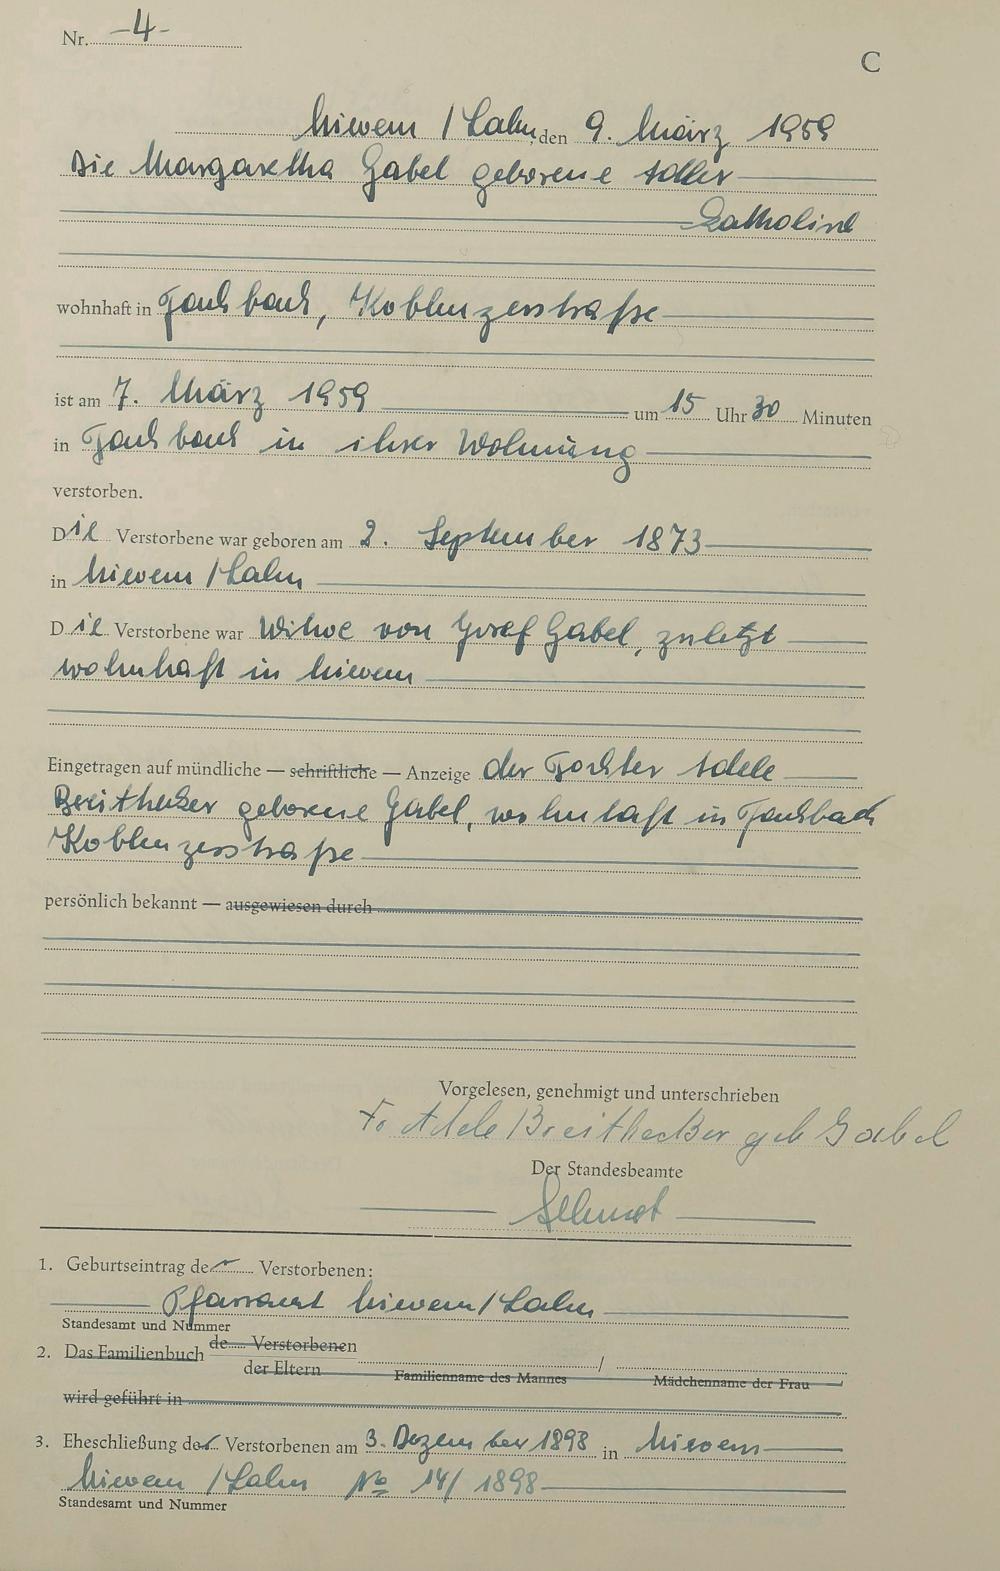 Nr. -4-
C
Nievern / Lahn, den 9. März 1959
Die Margaretha Gabel geborene Adler
katholisch
wohnhaft in Fachbach, Koblenzerstraße
ist am 7. März 1959 um 15 Uhr 30 Minuten
in Fachbach in ihrer Wohnung
verstorben.
Die Verstorbene war geboren am 2. September 1873
in Nievern / Lahn
Die Verstorbene war Witwe von Josef Gabel, zuletzt
wohnhaft in Nievern
Eingetragen auf mündliche — schriftliche — Anzeige der Tochter Adele
Breithecker geborene Gabel, wohnhaft in Fachbach
Koblenzerstraße
persönlich bekannt — ausgewiesen durch
Vorgelesen, genehmigt und unterschrieben
Fr. Adele Breithecker geb Gabel
Der Standesbeamte
1. Geburtseintrag der Verstorbenen:
Pfarramt Nievern / Lahn
Standesamt und Nummer
2. Das Familienbuch de Verstorbenen
der Eltern
/
Familienname des Mannes Mädchenname der Frau
wird geführt in
3. Eheschließung der Verstorbenen am 3. Dezember 1898 in Nievern
Nievern / Lahn No 14/1898
Standesamt und Nummer